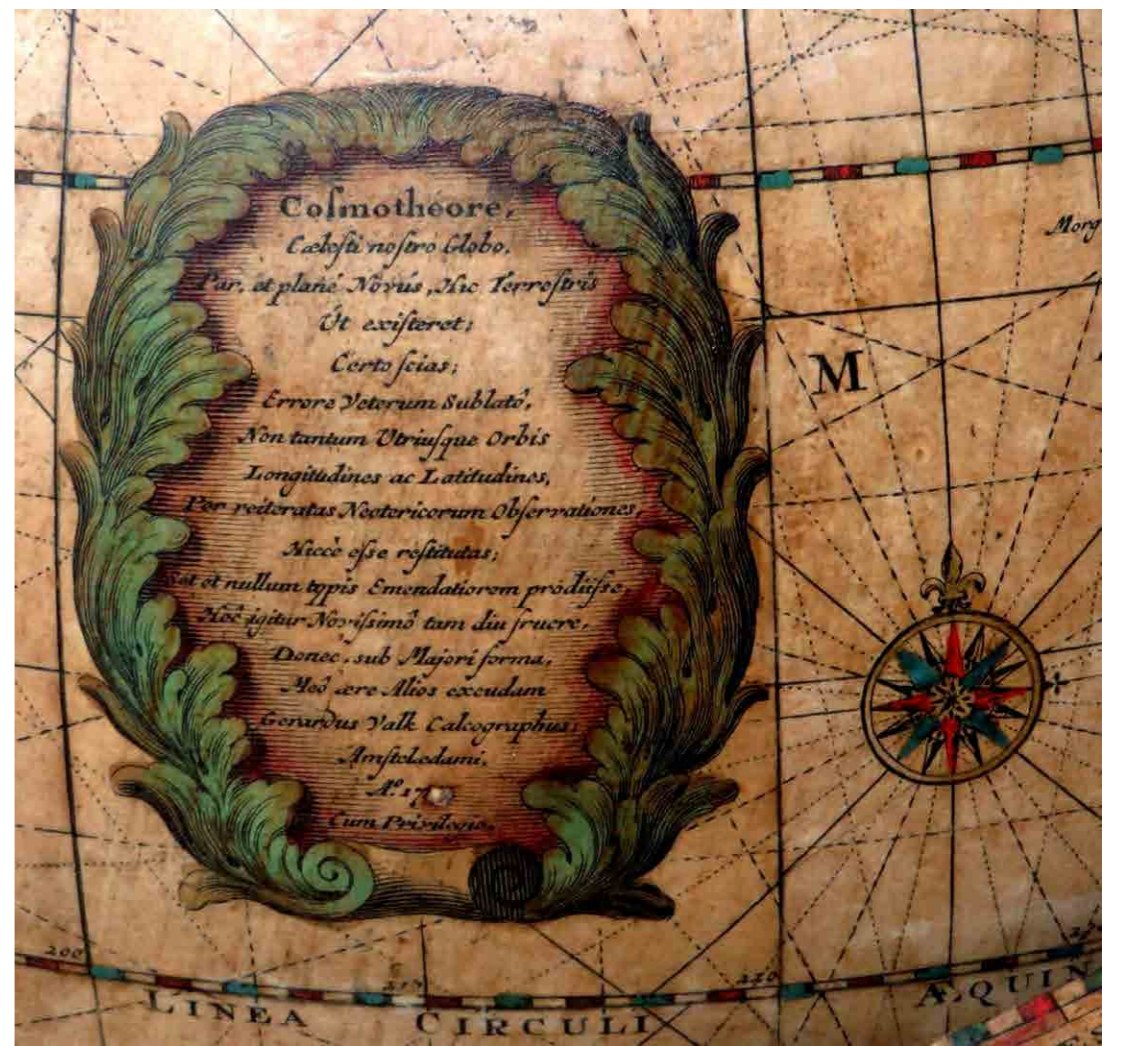 Coſmotheore,
Cæleſti noſtro Globo,
Par, et planè Novus, Hic Terreſtris
Ut exiſteret;
Certo ſcias;
Errore Veterum Sublatô,
Non tantum Utriuſque Orbis
Longitudines ac Latitudines,
Per reiteratas Neotericorum Obſervationes,
Hiccè eſse reſtitutas;
et nullum typis Emendatiorem prodiiſse
Hôc igitur Noviſsimô tam diu fruere,
Donec, sub Majori forma,
Meô ære Alios excudam
Gerardus Valk Calcographus;
Amſteledami,
Aº 17
Cum Privilegio.
Morg
M
200
210
220
LINEA CIRCULI ÆQUIN